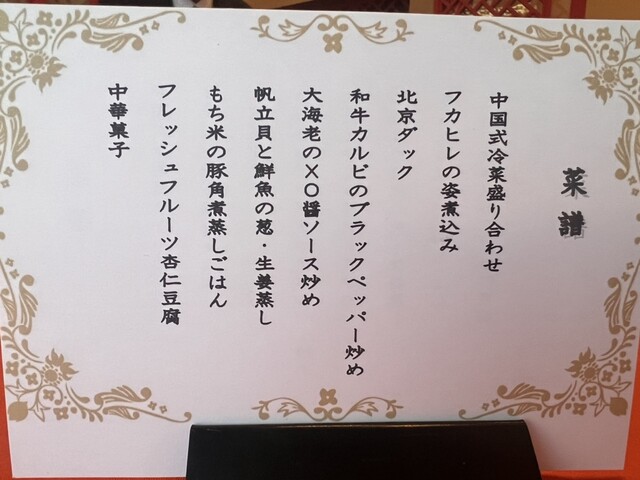 菜譜
中国式冷菜盛り合わせ
フカヒレの姿煮込み
北京ダック
和牛カルビのブラックペッパー炒め
大海老のXO醤ソース炒め
帆立貝と鮮魚の葱・生姜蒸し
もち米の豚角煮蒸しごはん
フレッシュフルーツ杏仁豆腐
中華菓子